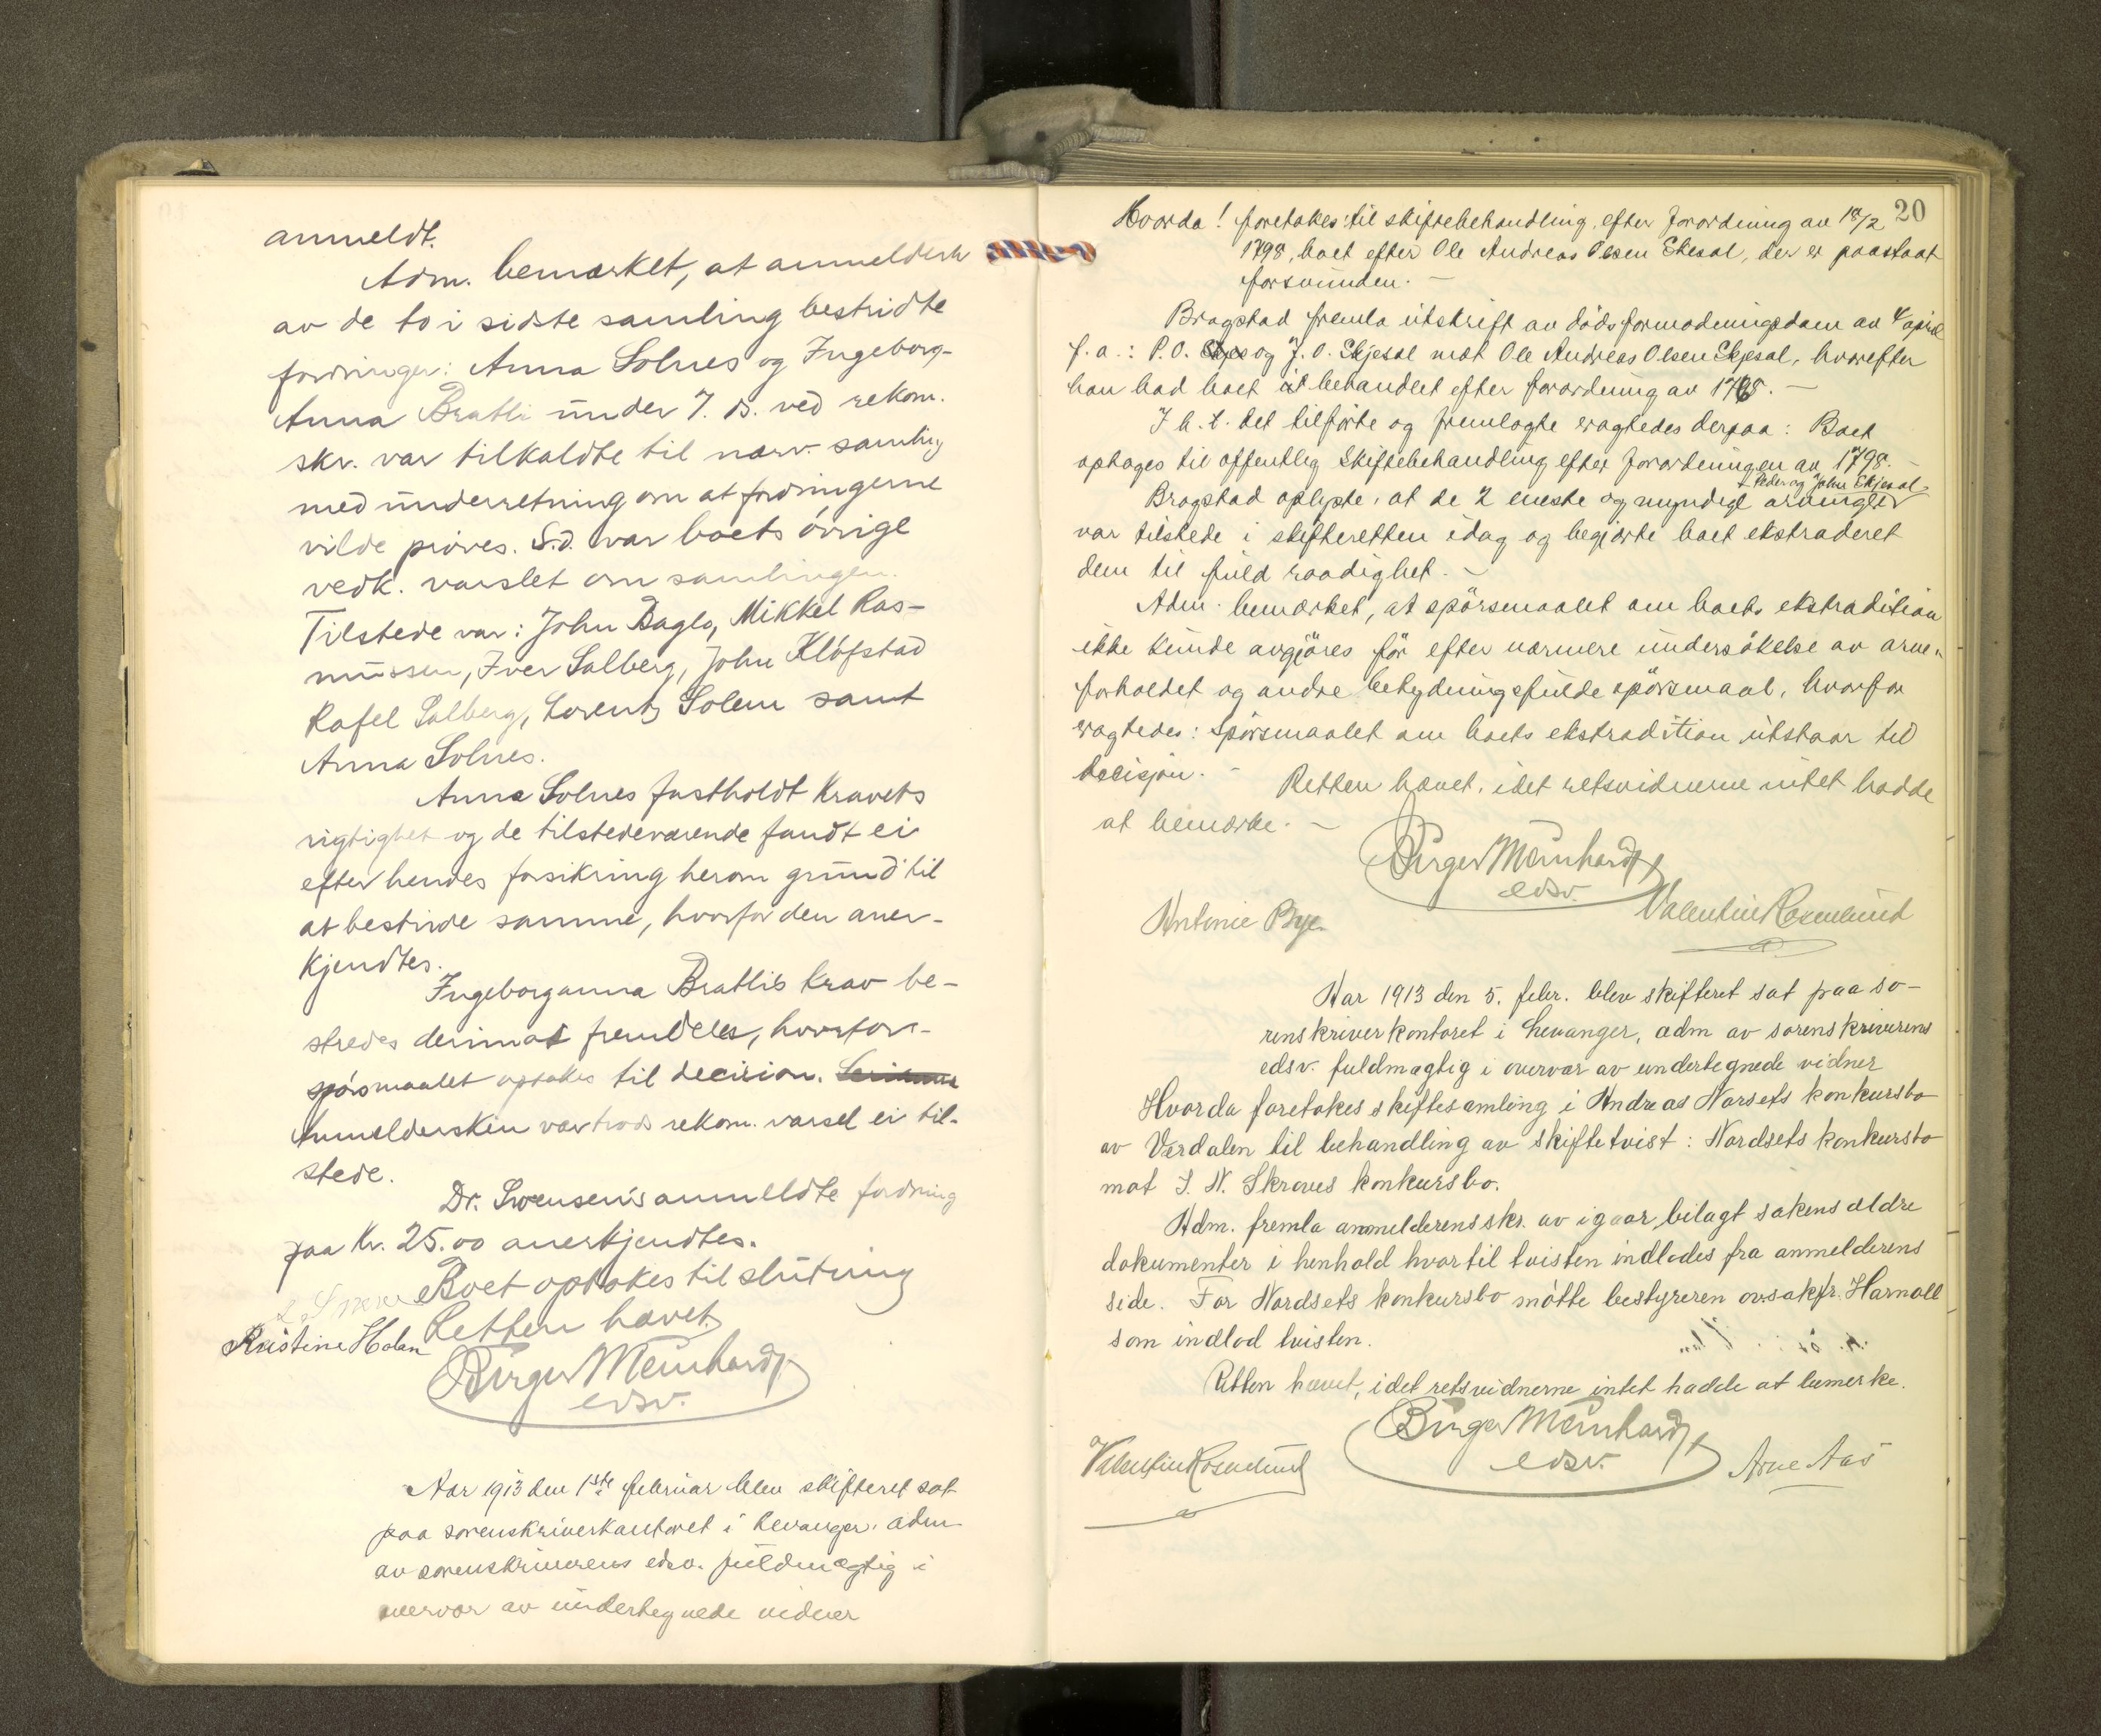 anmeldt.
Adm. bemærket, at anmelderne
av de to i sidste samling bestridte
fordringer: Anna Solnes og Ingeborg-
Anna Bratli under 7. ds. ved rekom.
skr. var tilkaldte til nærv. samling
med underretning om at fordringerne
vilde prøves. S.d. var boets övrige
vedk. varslet om samlingen.
Tilstede var: John Baglo, Mikkel Ras-
mussen, Iver Salberg, John Klöfstad
Rafel Salberg, Lorents Solem samt
Anna Solnes.
Anna Solnes fastholdt kravets
rigtighet og de tilstedeværende fandt ei
efter hendes forsikring herom grund til
at bestride samme, hvorfor den aner-
kjendtes.
Ingeborganna Bratlis krav be-
stredes derimot fremdeles, hvorfor
spörsmaalet optakes til decision.
Anmeldersken var trods rekom. varsel ei til-
stede.
Dr. Svensen's anmeldte fordring
paa Kr. 25.00 anerkjendtes.
Boet optokes til slutning
Retten hævet.
Kristine Holan
Birger Meinhardt
edsv.
Aar 1913 den 1ste februar blev skifteret sat
paa sorenskriverkontoret i Levanger, adm
av sorenskriverens edsv. fuldmægtig i
overvær av undertegnede vidner
20
Hvorda! foretokes til skiftebehandling efter forordning av 18/2
1798, boet efter Ole Andreas Olsen Ekesal, der er paastaat
forsvunden. —
Bragstad fremla utskrift av dödsformodningsdom av 4 april
f.a.: P.O. og J.O. Skjesol mot Ole Andreas Olsen Skjesol, hvorefter
han bad boet behandlet efter forordning av 1798. —
I h. t. det tilförte og fremlagte eragtedes derpaa: Boet
optages til offentlig skiftebehandling efter forordningen av 1798. —
Peder og John Skjesol
Bragstad oplyste, at de 2 eneste og myndige arvinger
var tilstede i skifteretten idag og begjærte boet ekstraderet
dem til fuld raadighet. —
Adm. bemærket, at spörsmaalet om boets ekstradition
ikke kunde avgjöres för efter nærmere undersökelse av arve-
forholdet og andre betydningsfulde spörsmaal, hvorfor
eragtedes: Spörsmaalet om boets ekstradition utstaar til
decisjon. — Retten hævet, idet retsvidnerne intet hadde
at bemærke. —
Birger Meinhardt
edsv.
Antonie Bye.
Valentin Rosenlund
Aar 1913 den 5. febr. blev skifteret sat paa so-
renskriverkontoret i Levanger, adm av sorenskriverens
edsv. fuldmægtig i overvær av undertegnede vidner
Hvorda foretokes skiftesamling i Andreas Norsets konkursbo
av Værdalen til behandling av skiftetvist: Nordsets konkursbo
mot J. N. Skroves konkursbo.
Adm. fremla anmelderens skr. av igaar, bilagt sakens ældre
dokumenter i henhold hvortil tvisten indlodes fra anmelderens
side. For Nordsets konkursbo mötte bestyreren ovsakfr. Harnoll
som indlod tvisten.
Retten hævet, idet retsvidnerne intet hadde at bemerke.
Birger Meinhardt
edsv.
Valentin Rosenlund
Arne Aas